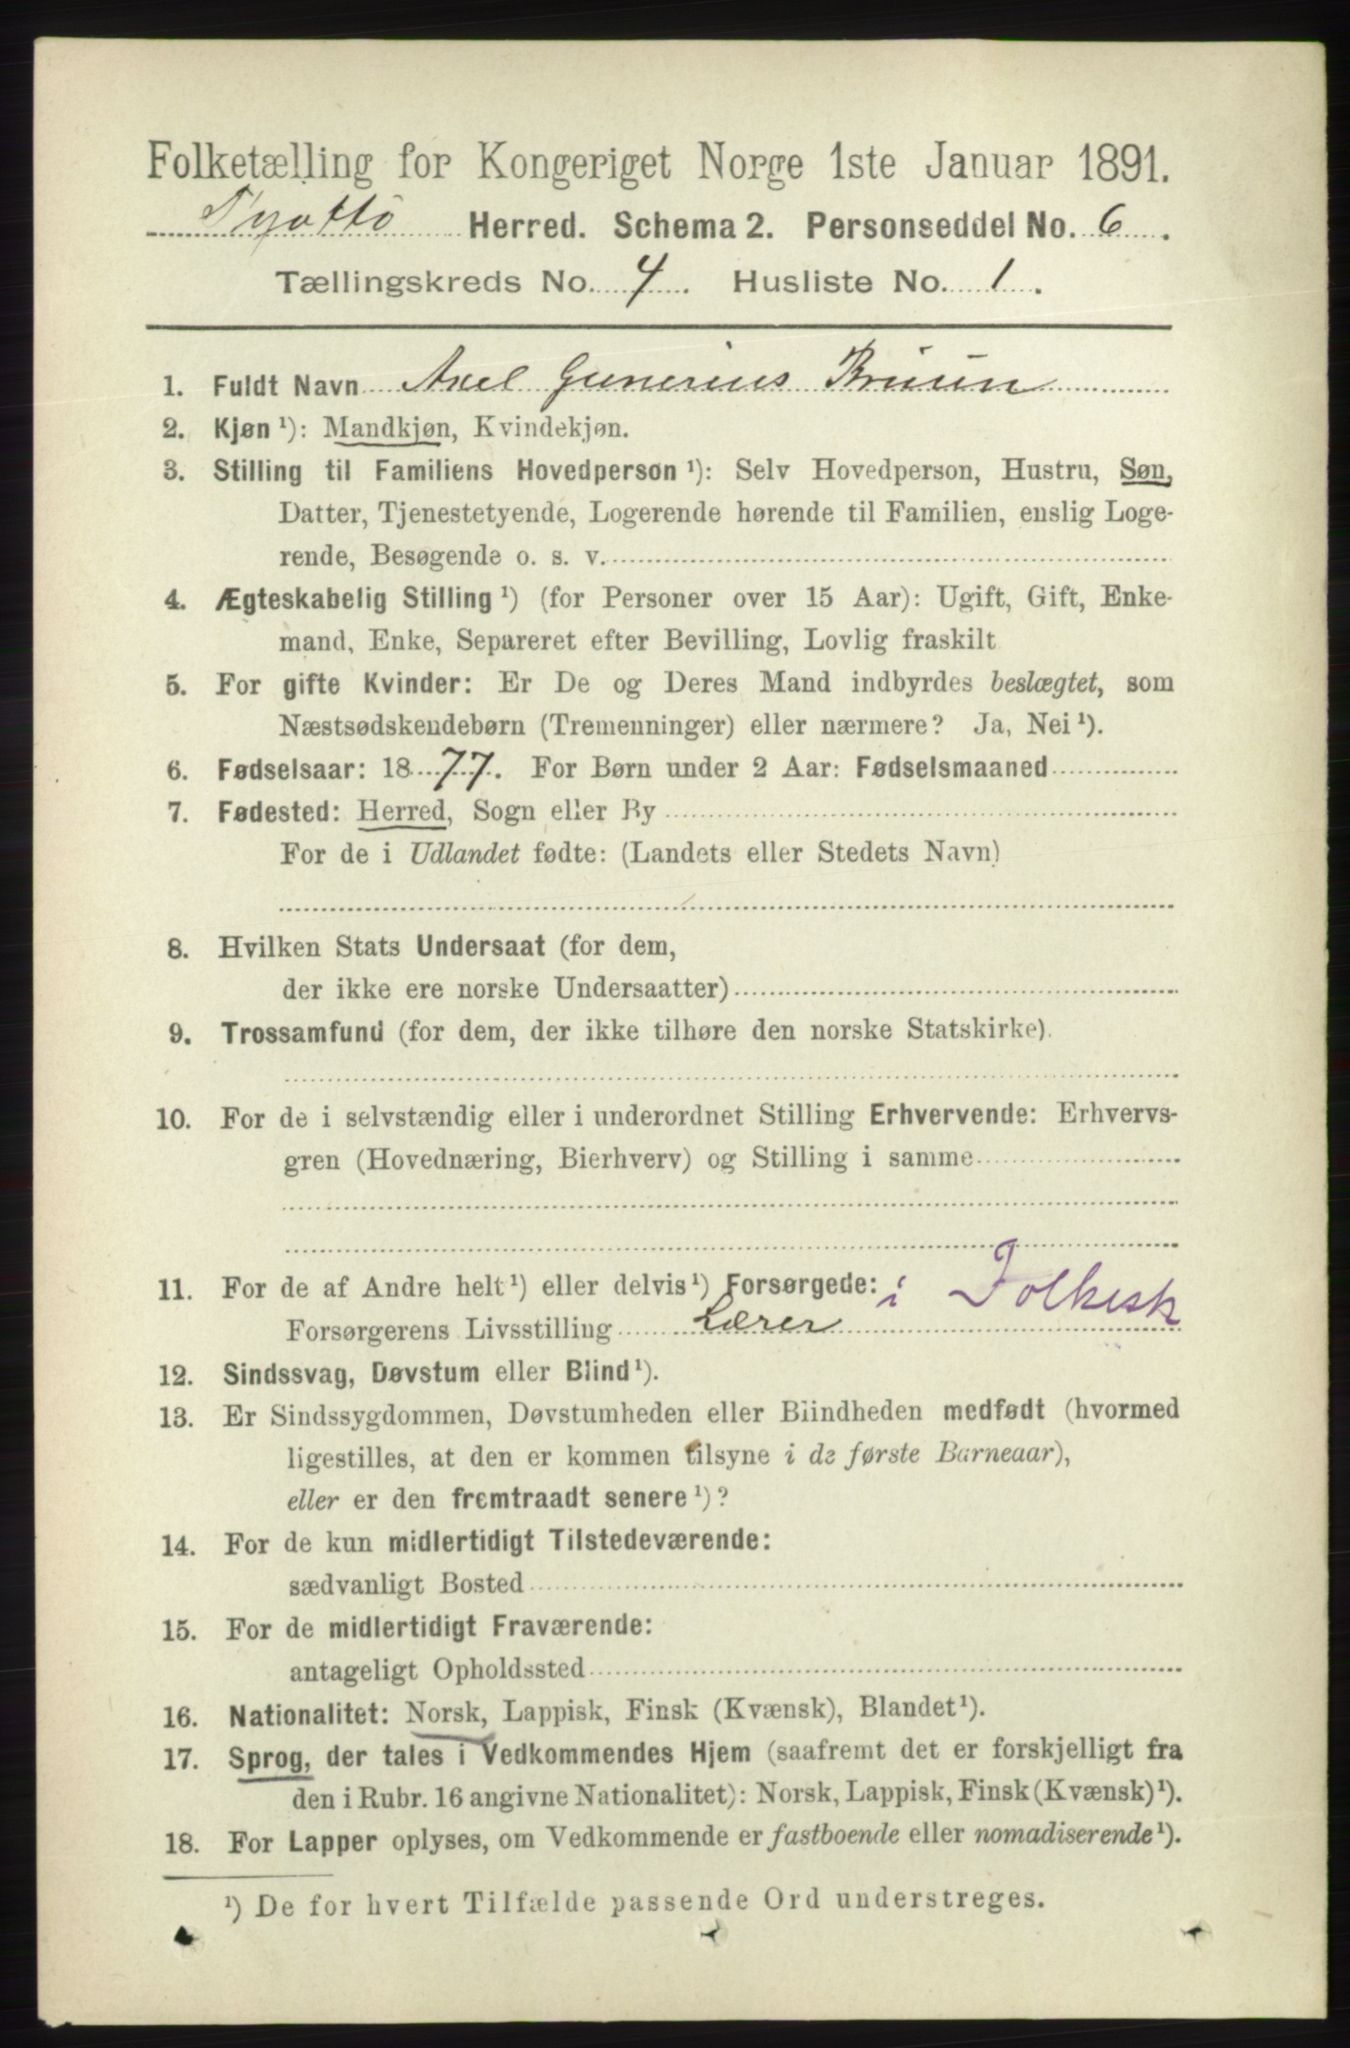 Folketælling for Kongeriget Norge 1ste Januar 1891.
Tjøttö Herred. Schema 2. Personseddel No. 6.
Tællingskreds No. 4. Husliste No. 1.
1. Fuldt Navn Axel Gunerius Bruun
2. Kjøn ¹): Mandkjøn, Kvindekjøn.
3. Stilling til Familiens Hovedperson ¹): Selv Hovedperson, Hustru, Søn,
Datter, Tjenestetyende, Logerende hørende til Familien, enslig Loge-
rende, Besøgende o. s. v.
4. Ægteskabelig Stilling ¹) (for Personer over 15 Aar): Ugift, Gift, Enke-
mand, Enke, Separeret efter Bevilling, Lovlig fraskilt
5. For gifte Kvinder: Er De og Deres Mand indbyrdes beslægtet, som
Næstsødskendebørn (Tremenninger) eller nærmere? Ja, Nei ¹).
6. Fødselsaar: 1877. For Børn under 2 Aar: Fødselsmaaned
7. Fødested: Herred, Sogn eller By
For de i Udlandet fødte: (Landets eller Stedets Navn)
8. Hvilken Stats Undersaat (for dem,
der ikke ere norske Undersaatter)
9. Trossamfund (for dem, der ikke tilhøre den norske Statskirke).
10. For de i selvstændig eller i underordnet Stilling Erhvervende: Erhvervs-
gren (Hovednæring, Bierhverv) og Stilling i samme
11. For de af Andre helt ¹) eller delvis ¹) Forsørgede:
Forsørgerens Livsstilling Lærer i Folkesk
12. Sindssvag, Døvstum eller Blind ¹).
13. Er Sindssygdommen, Døvstumheden eller Blindheden medfødt (hvormed
ligestilles, at den er kommen tilsyne i de første Barneaar),
eller er den fremtraadt senere ¹)?
14. For de kun midlertidigt Tilstedeværende:
sædvanligt Bosted
15. For de midlertidigt Fraværende:
antageligt Opholdssted
16. Nationalitet: Norsk, Lappisk, Finsk (Kvænsk), Blandet ¹).
17. Sprog, der tales i Vedkommendes Hjem (saafremt det er forskjelligt fra
den i Rubr. 16 angivne Nationalitet): Norsk, Lappisk, Finsk (Kvænsk) ¹).
18. For Lapper oplyses, om Vedkommende er fastboende eller nomadiserende ¹).
¹) De for hvert Tilfælde passende Ord understreges.